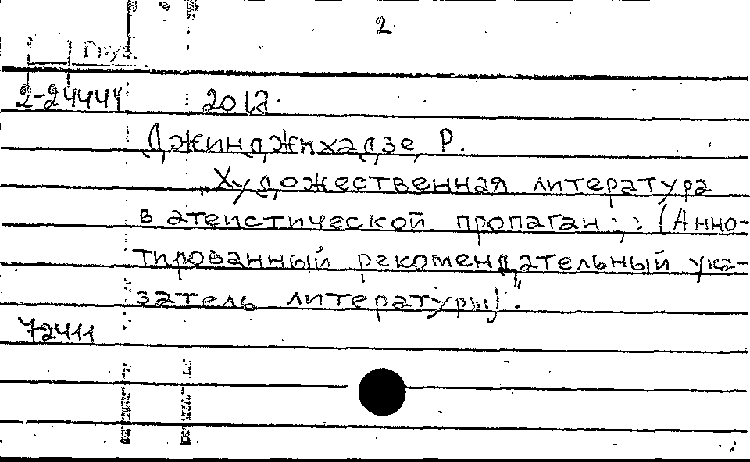 2
Груз.
2-24444 2012.
Джинджихадзе Р.
"Художественная литература
в атеистической (Анно-
тированный рекомендательный ука-
затель литературы)".
72411